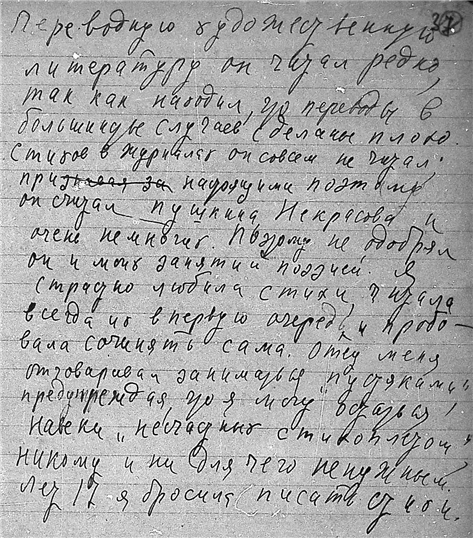 37
Переводную художественную
литературу он читал редко,
так как находил, что переводы в
большинстве случаев сделаны плохо.
Стихов в журналах он совсем не читал;
призывая за настоящими поэтами
он считал Пушкина, Некрасова и
очень немногих. Поэтому не одобрял
он и моих занятий поэзией. Я
страстно любила стихи, читала
всегда их в первую очередь и пробо-
вала сочинять сама. Отец меня
отговаривал заниматься "пустяками",
предупреждая, что я могу остаться
навеки "несчастным стихоплетом",
никому и ни для чего ненужным.
Лет 17 я бросила писать стихи.